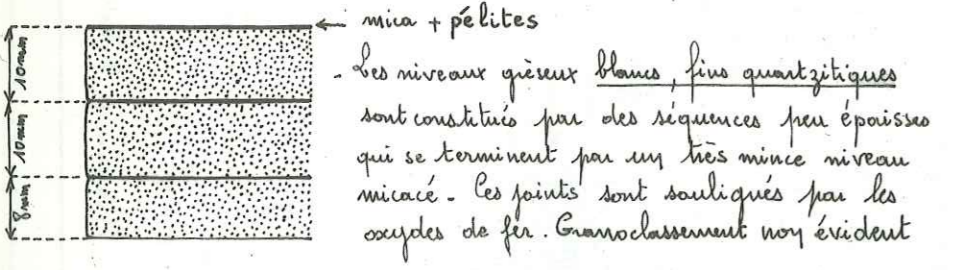 mica + pélites
10mm
10mm
8mm
- Les niveaux grèseux blancs, fins quartzitiques
sont constitués par des séquences peu épaisses
qui se terminent par un très mince niveau
micacé. Ces joints sont souliqués par les
oxydes de fer. Granoclassement non évident